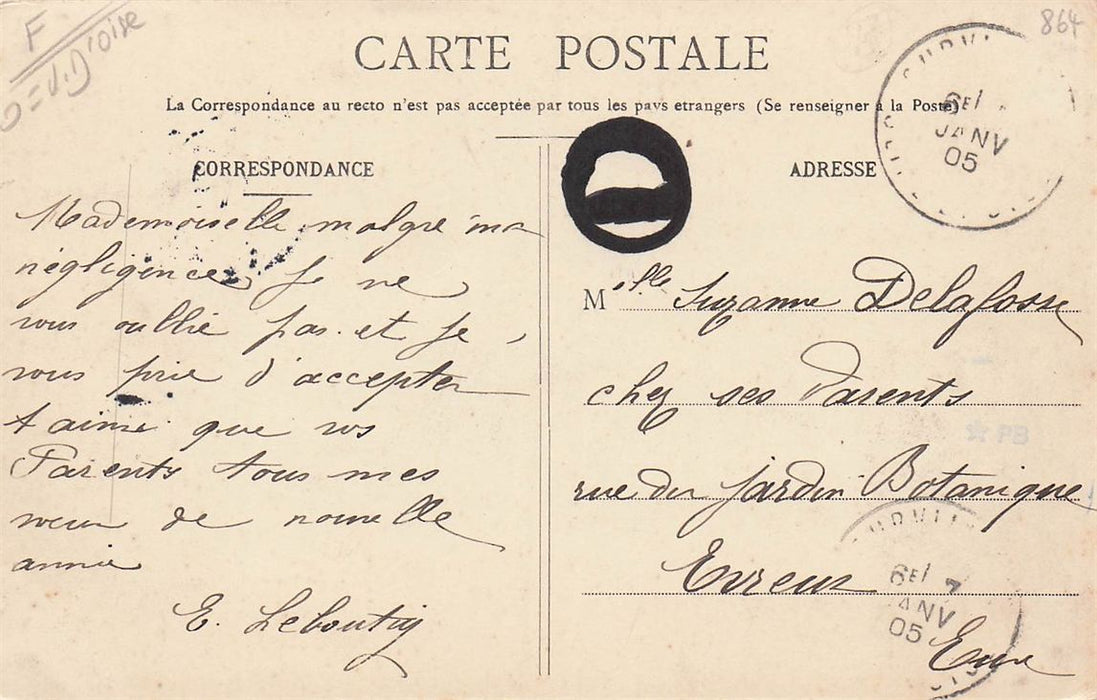 F
D'oise
864
CARTE POSTALE
La Correspondance au recto n'est pas acceptée par tous les pays etrangers (Se renseigner à la Poste)
CORRESPONDANCE
Mademoiselle malgré ma
négligence je ne
vous oublie pas et je
vous prie d'accepter
ainsi que vos
Parents tous mes
vœux de nouvelle
année
ADRESSE
Melle Suzanne Delafosse
chez ses Parents
rue du jardin Botanique
Evreux
Eure
6E
JANV
05
6E 7
JANV
05
PB